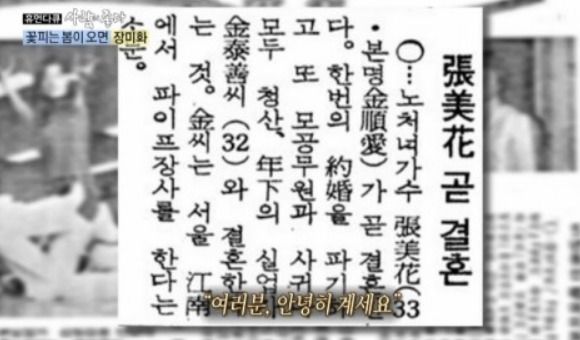 휴먼다큐 사람이 좋다
꽃피는 봄이 오면 장미화
張美花 곧 결혼
○…노처녀가수 張美花(33
·본명金順愛)가 곧 결혼
다. 한번의 約婚을 파기
고 또 모공무원과 사귀
모두 청산, 年下의 실업
金泰善씨(32)와 결혼한
는 것. 金씨는 서울 江南
에서 파이프장사를 한다는
소문.
"여러분, 안녕히 계세요"